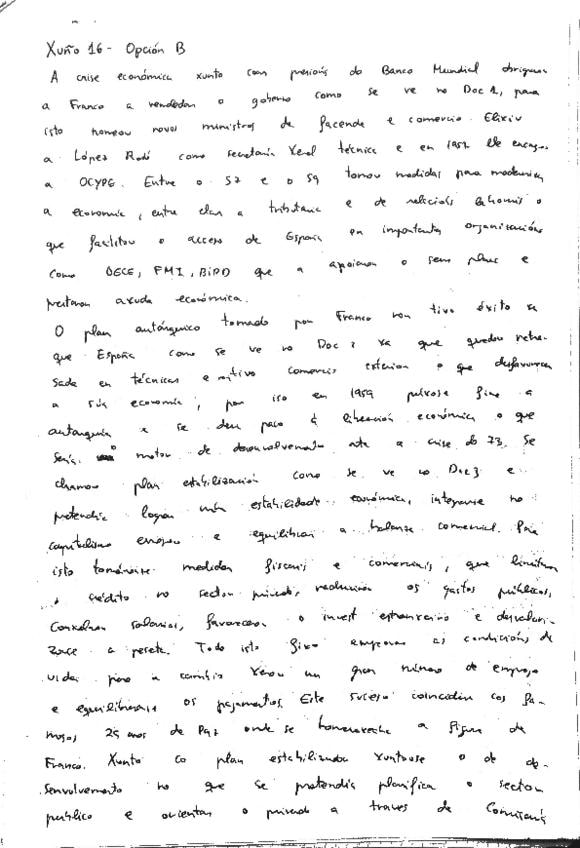 Xuño 16 - Opción B
A crise económica xunto con presións do Banco Mundial obrigaron
a Franco a remodelar o goberno como se ve no Doc 1, para
isto nomeou novos ministros de facenda e comercio. Elixiu
a López Rodó como secretario xeral técnico e en 1957
a OCYPE. Entre o 57 e o 59 tomou medidas para modernizar
a economía, entre elas a tributaria e de relacións o
que facilitou o acceso de España en importantes organizacións
como OECE, FMI, BIRD que a apoiaron o seus plans e
prestaron axuda económica.
O plan autárquico tomado por Franco non tivo éxito xa
que España como se ve no Doc 2 xa que quedou retra-
sada en técnicas e comercio exterior o que desfavorecen
a súa economía, por iso en 1959 púxose fin a
autarquía e se deu paso á liberación económica o que
sería motor de desenvolvemento ata a crise do 73. Se
chamou plan estabilización como se ve no Doc 3 e
pretendía lograr unha estabilidade económica, integrarse no
capitalismo europeo e equilibrar a balanza comercial. Para
isto tomáronse medidas fiscais e comerciais, que limitan
o crédito no sector privado, reduciron os gastos públicos,
conxelaron salarios, favorecen o invest estranxeiro e desvalori-
zouse a peseta. Todo isto fixo empeorar as condicións de
vida pero a cambio xerou un gran número de emprego
e equilibráronse os pagamentos. Este suceso coinciden cos fa-
mosos 25 anos de Paz onde se homenaxeaba a figura de
Franco. Xunto co plan estabilizador xuntouse o de de-
senvolvemento no que se pretendía planificar o sector
público e orientar o privado a traves de Comisaría